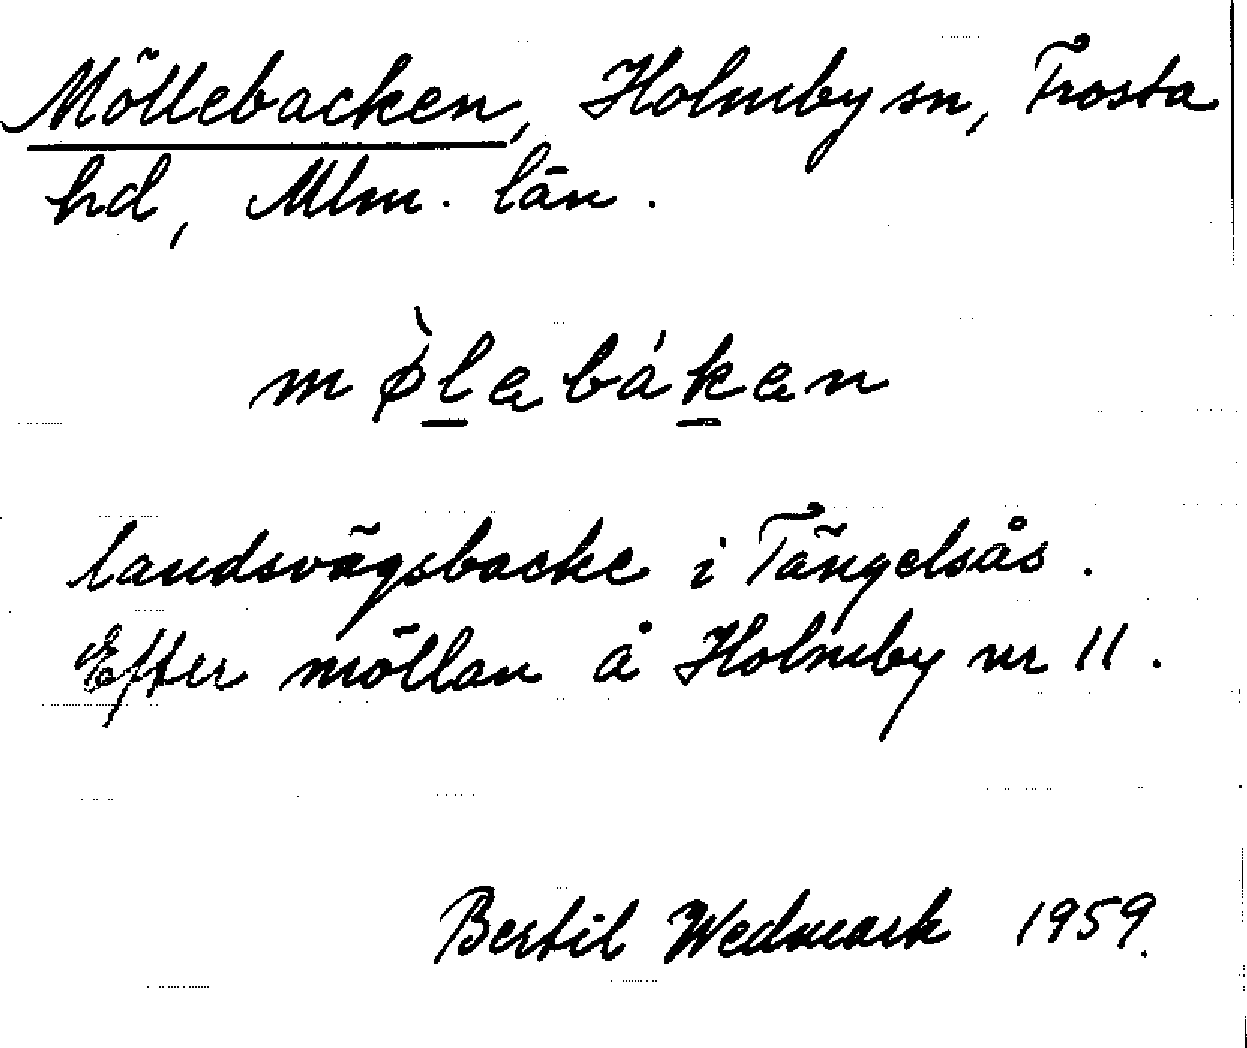 Möllebacken, Holmby sn, Frosta
hd, Mlm. län.
mø̀l̲ebák̲en
landsvägsbacke i Tängelsås.
Efter möllan å Holmby nr 11.
Bertil Wedmark 1959.